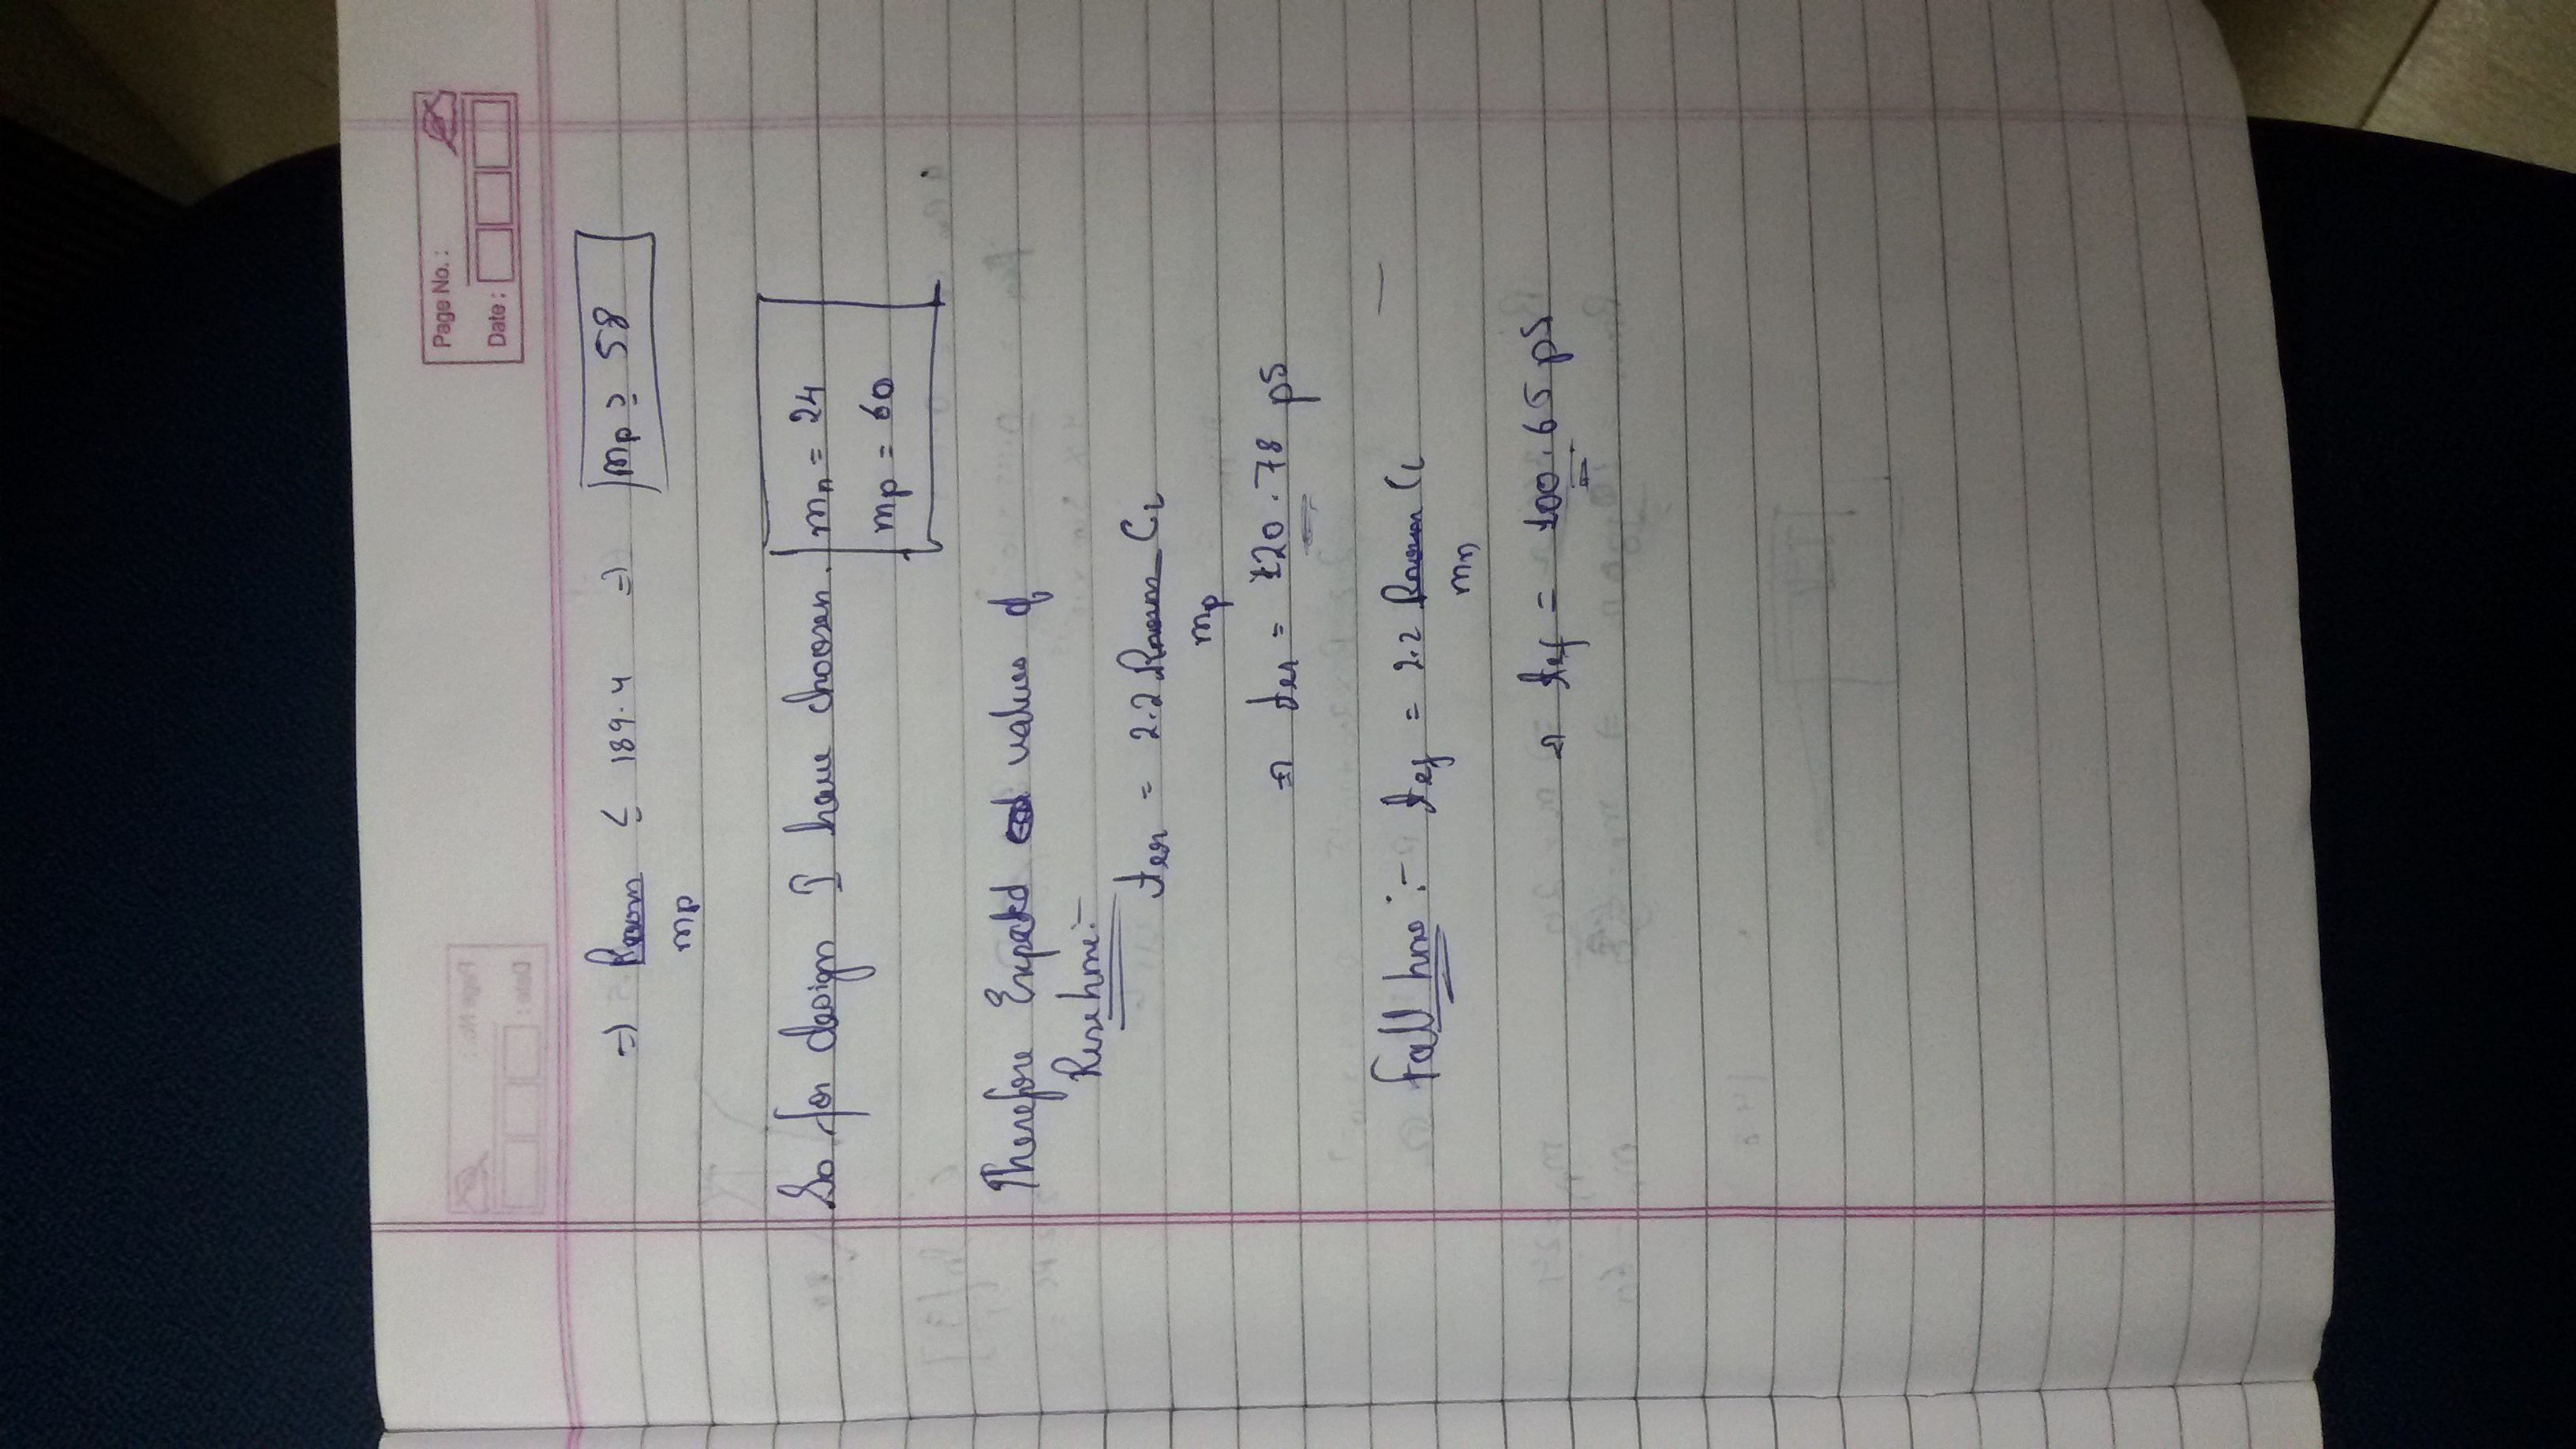 Page No. :
Date :
=> Rnom ≤ 189.4 => mp ≥ 58
mp
So for design I have choosen. mn = 24
mp = 60
Therefore Expected values of
Risetime:-
ter = 2.2 Rnom CL
mp
=> ter = 120.78 ps
Fall time :- tef = 2.2 Rnom CL
mn
=> tef = 100.65 ps